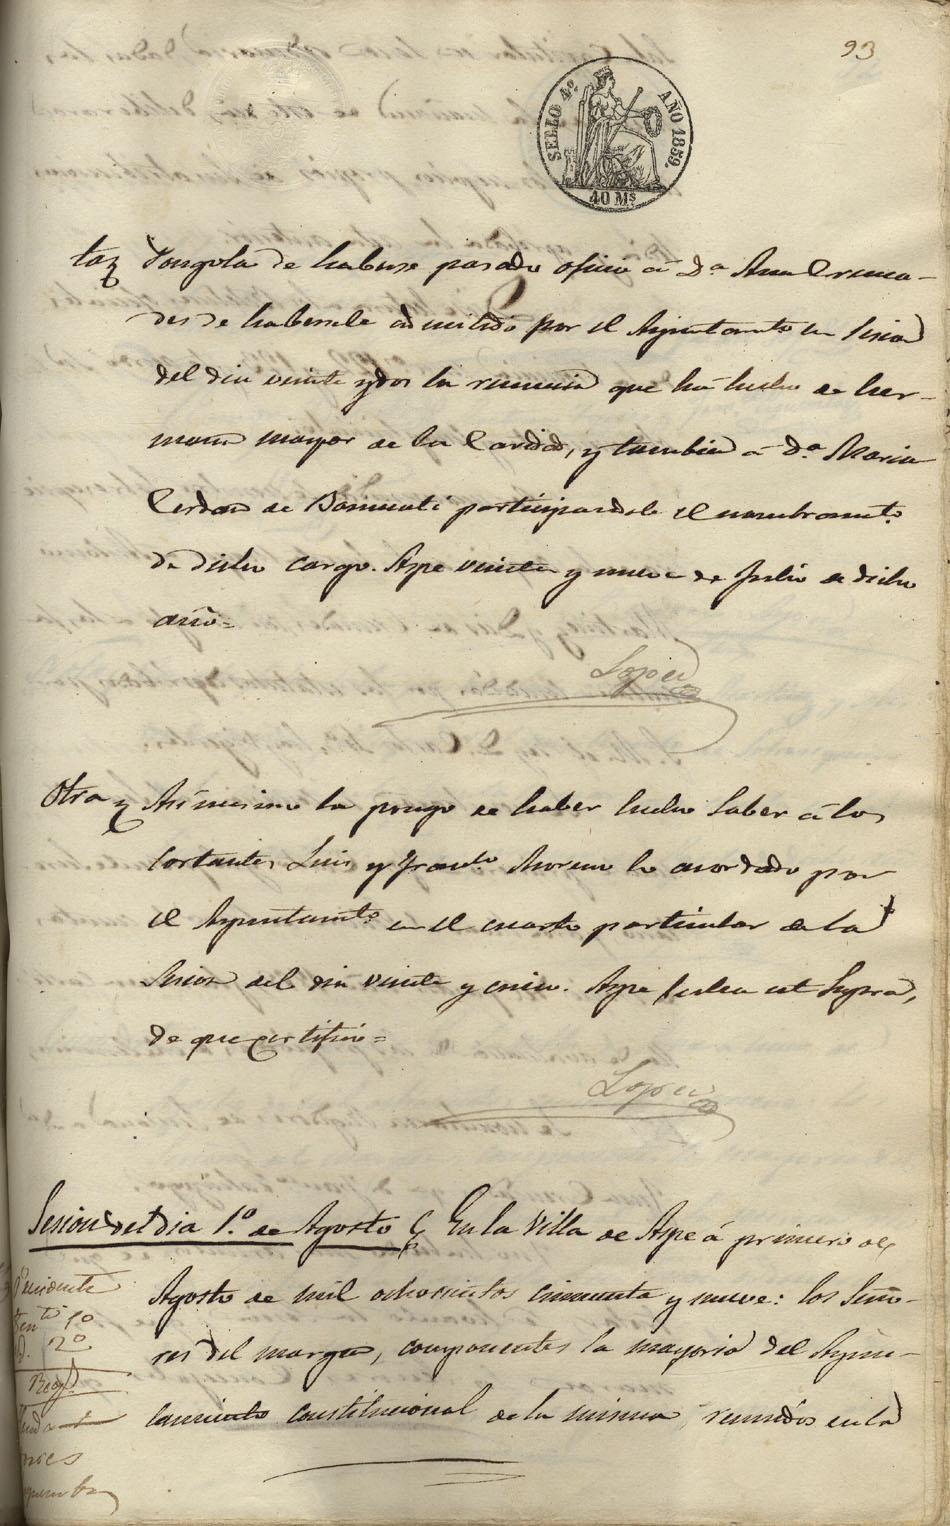 93
SELLO 4º AÑO 1859.
40 Ms
Pongola de haberse pasado oficio á Dª Ana Cremades
de habersele admitido por el Ayuntamto en Sesion
del dia veinte y dos la renuncia que há hecho de hermana
mayor de la Caridad, y tambien á Dª Maria
Cerdan de participandole el nombramto
de dicho cargo. Aspe veinte y nueve de Julio de dicho
año=
Lopez
Otra Asimismo la pongo de haber hecho saber á los
cortantes Luis y Franco Moreno lo acordado por
el Ayuntamto en el cuarto particular de la
Sesion del dia veinte y cinco. Aspe fecha ut Supra,
de que certifico=
Lopez
Sesion del dia 1º de Agosto En la Villa de Aspe á primero de
Agosto de mil ochocientos cincuenta y nueve: los Seño-
res del margen, componentes la mayoria del Ayun-
tamiento constitucional de la misma, reunidos en la
Presidente
Tente 1º
Id. 2º
Regs